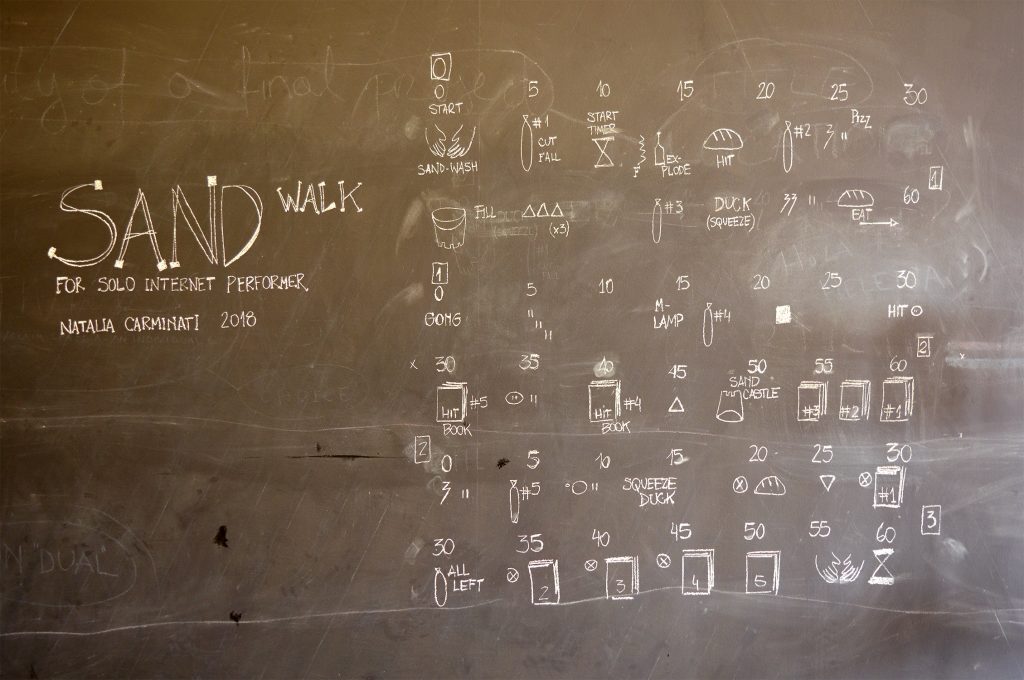 ity of a final
SAND WALK
FOR SOLO INTERNET PERFORMER
NATALIA CARMINATI 2018
0
0 5 10 15 20 25 30
START #1 CUT FALL START TIMER EX-PLODE HIT #2 " PIZZ
SAND-WASH F
1
FILL (x3) #3 DUCK (SQUEEZE) " EAT 60
(SQUEEZE)
1
0 5 10 15 20 25 30
GONG " " " M-LAMP #4 HIT
2
x 30 35 40 45 50 55 60 x
HIT BOOK #5 " HIT BOOK #4 SAND CASTLE #3 #2 #1
2
0 5 10 15 20 25 30
" #5 " SQUEEZE DUCK #1
3
30 35 40 45 50 55 60
ALL LEFT 2 3 4 5
N "DUAL"